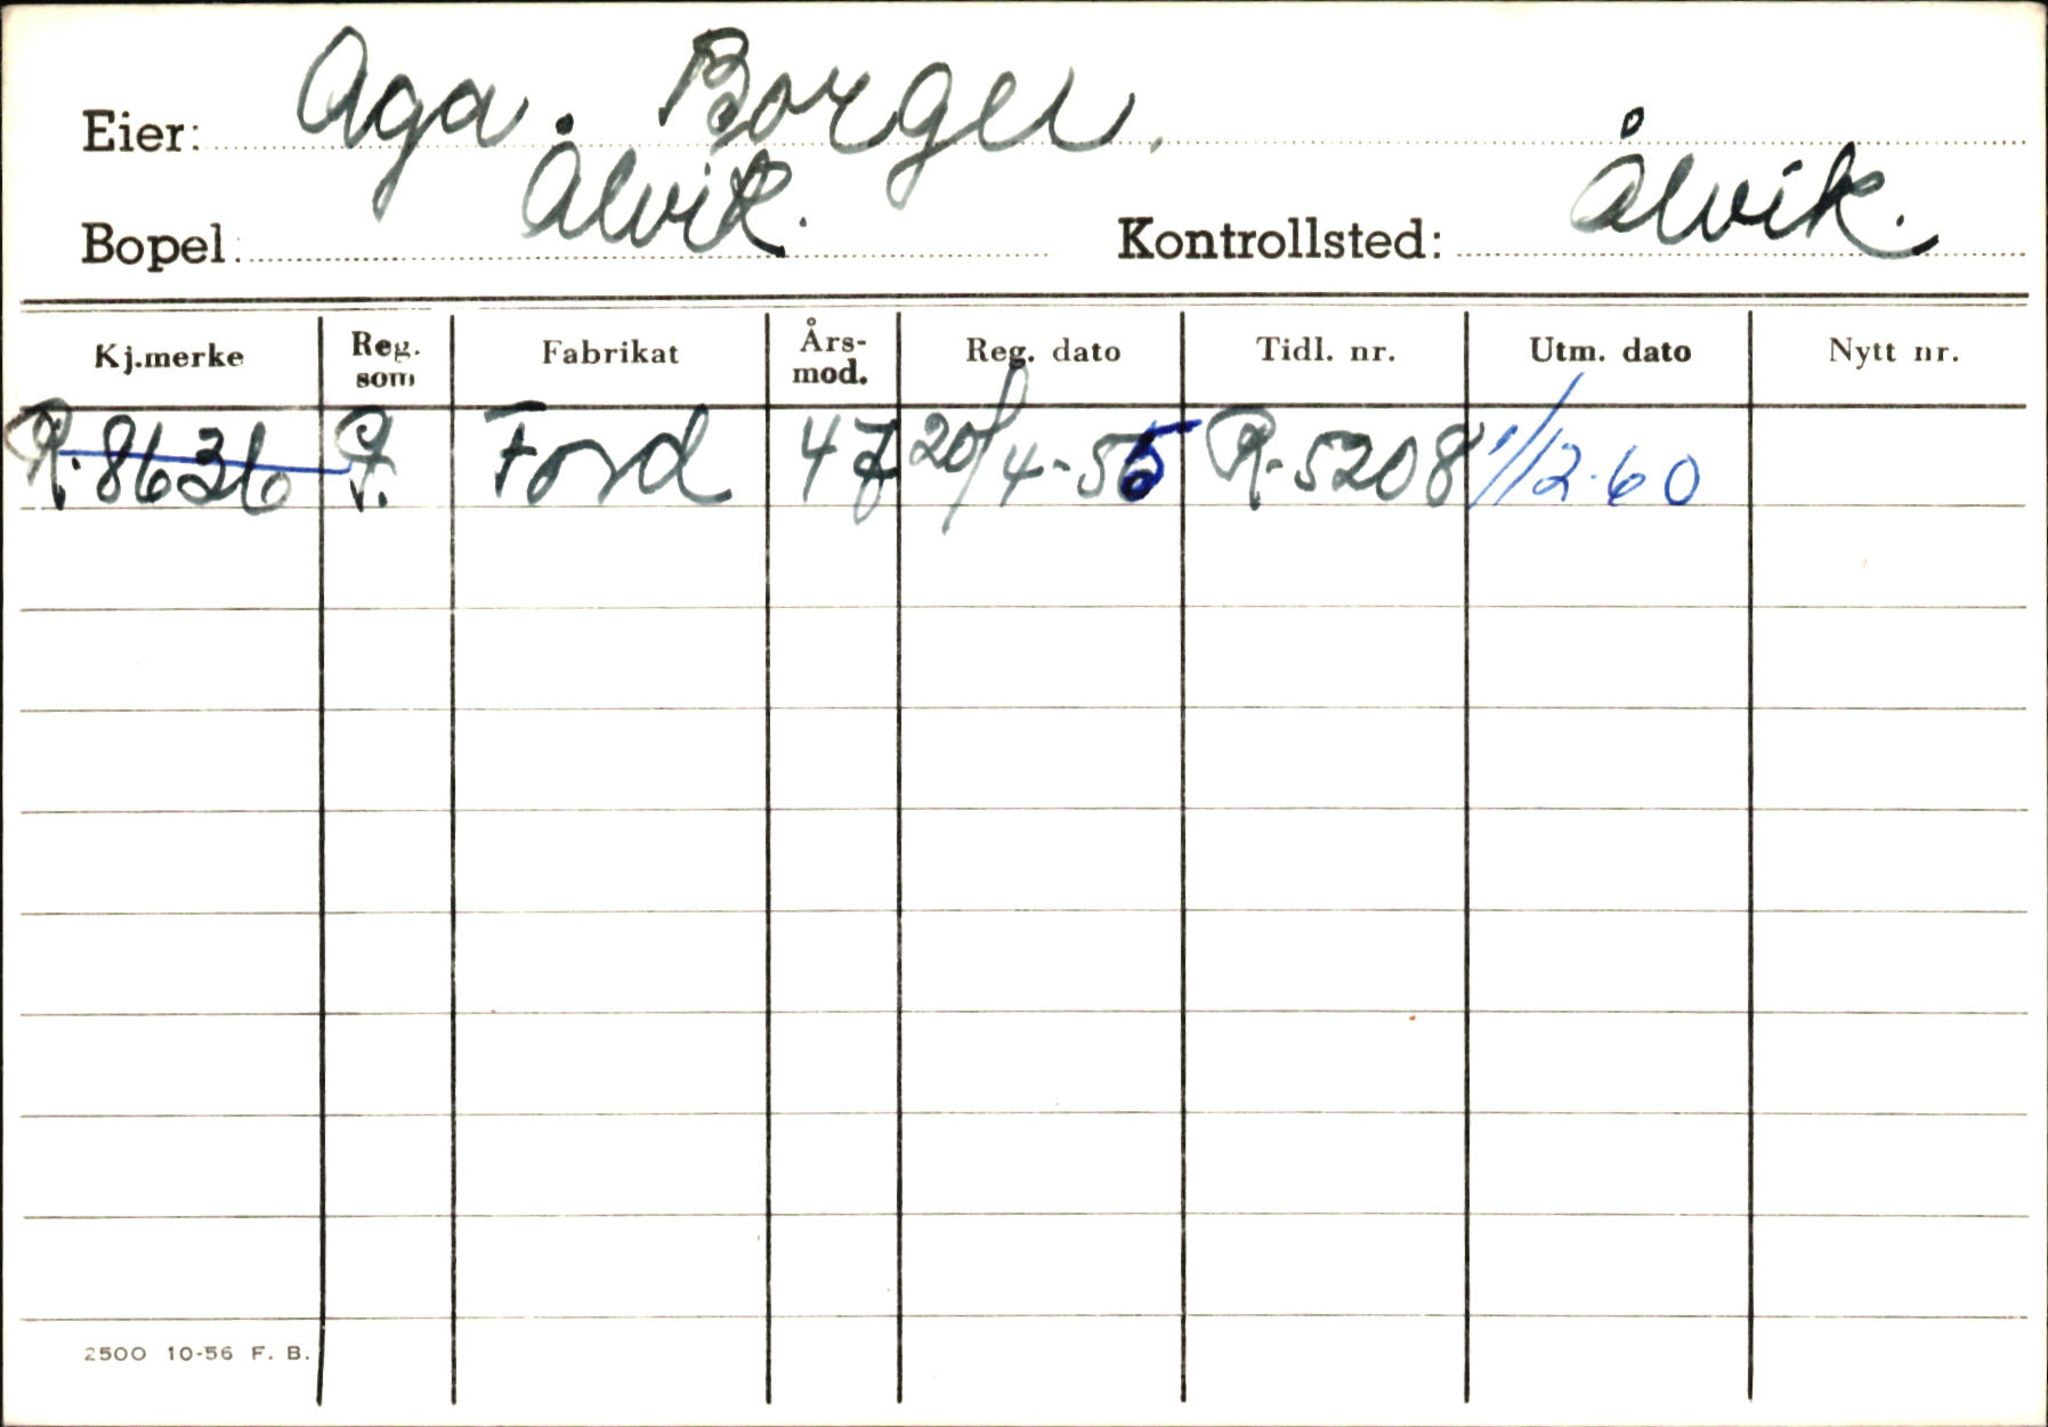 Eier: Aga. Borger.
Bopel: Ålvik. Kontrollsted: Ålvik.
Kj.merke Reg. som Fabrikat Års-mod. Reg. dato Tidl. nr. Utm. dato Nytt nr.
R.8636 P. Ford 47 20/4-55 R-5208 1/12-60
2500 10-56 F. B.